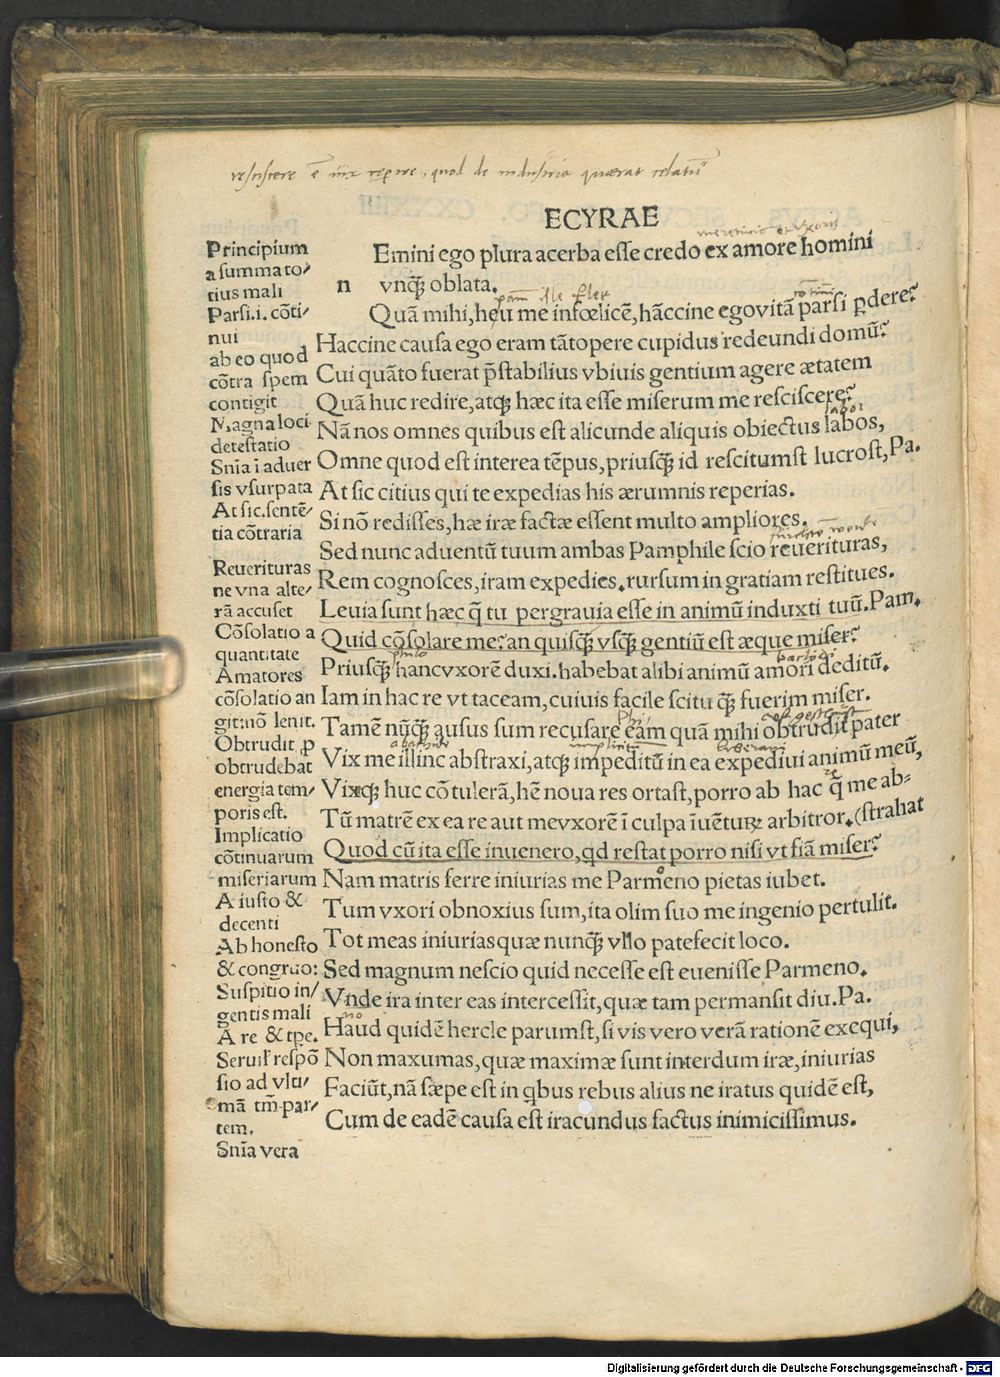 resciscere
quod de industria quaerat
ECYRAE
Principium
a summa to/
tius mali
Parsi.i. cōti/
nui
ab eo quod
cōtra spem
contigit
Magna loci
detestatio
Snīa ī aduer
sis vsurpata
At sic. sentē/
tia cōtraria
Reuerituras
ne vna alte/
rā accuset
Cōsolatio a
quantitate
Amatores
cōsolatio an
git: nō lenit.
Obtrudit p
obtrudebat
energia tem/
poris est.
Implicatio
cōtinuarum
miseriarum
A iusto &
decenti
Ab honesto
& congruo:
Suspitio in/
gentis mali
A re & tpe.
respō
sio ad vlti/
mā tm̄ par/
tem.
Snīa vera
meretricis et uxoris
Emini ego plura acerba esse credo ex amore homini
n vnꝙ̄ oblata.
Quā mihi, heu me infœlicē, hāccine ego vitā parsi ꝑdere?
Haccine causa ego eram tātopere cupidus redeundi domū?
Cui quāto fuerat p̄stabilius vbiuis gentium agere ætatem
Quā huc redire, atqꝫ hæc ita esse miserum me resciscere?
labor
Nā nos omnes quibus est alicunde aliquis obiectus labos,
Omne quod est interea tēpus, priusꝙ̄ id rescitumst lucrost, Pa.
At sic citius qui te expedias his ærumnis reperias.
Si nō redisses, hæ iræ factæ essent multo ampliores.
Sed nunc aduentū tuum ambas Pamphile scio reuerituras,
Rem cognosces, iram expedies. rursum in gratiam restitues.
Leuia sunt hæc q̄ tu pergrauia esse in animū induxti tuū. Pam.
Quid cōsolare me? an quisꝙ̄ vsꝙ̄ gentiū est æque miser?
Priusꝙ̄ hanc vxorē duxi. habebat alibi animū amori deditū.
Iam in hac re vt taceam, cuiuis facile scitu ꝙ̄ fuerim miser.
Tamē nūꝙ̄ ausus sum recusare eam quā mihi obtrudit pater
Vix me illinc abstraxi, atqꝫ impeditū in ea expediui animū meū,
Vixqꝫ huc cōtulerā, hē noua res ortast, porro ab hac q̄ me ab-
Tū matrē ex ea re aut me vxorē ī culpa īuētuꝝ arbitror. (strahat
Quod cū ita esse inuenero, qd restat porro nisi vt fiā miser?
Nam matris ferre iniurias me Parmeno pietas iubet.
Tum vxori obnoxius sum, ita olim suo me ingenio pertulit.
Tot meas iniurias quæ nunꝙ̄ vllo patefecit loco.
Sed magnum nescio quid necesse est euenisse Parmeno.
Vnde ira inter eas intercessit, quæ tam permansit diu. Pa.
no
Haud quidē hercle parumst, si vis vero verā rationē exequi,
Non maxumas, quæ maximæ sunt interdum iræ, iniurias
Faciūt, nā sæpe est in qbus rebus alius ne iratus quidē est,
Cum de eadē causa est iracundus factus inimicissimus.
Digitalisierung gefördert durch die Deutsche Forschungsgemeinschaft - DFG